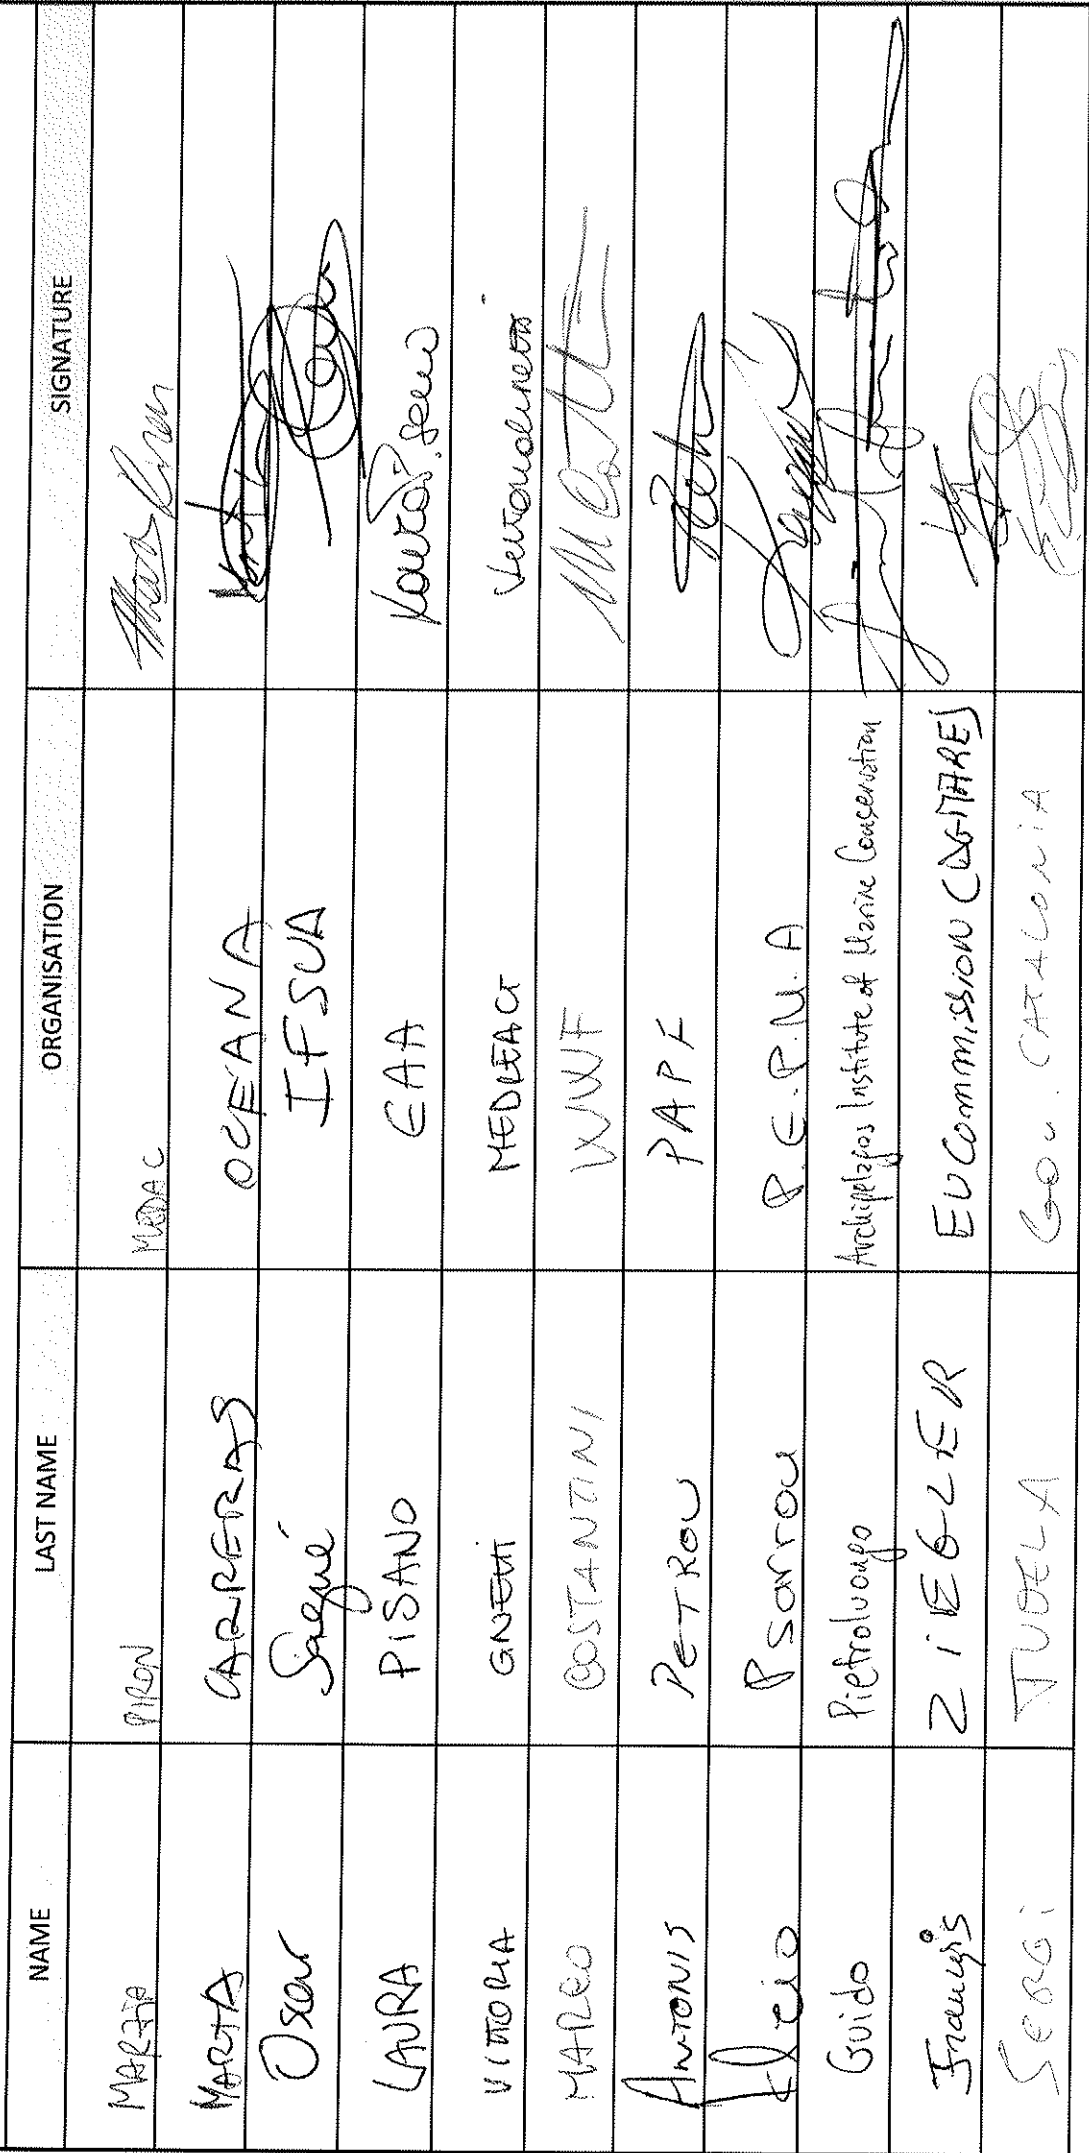 NAME LAST NAME ORGANISATION SIGNATURE
MARZIA PIRON MEDAC
MARTA CARRERAS OCEANA
Oscar Sagué IFSUA
LAURA PISANO EAA Laura Pisano
VITTORIA GNETTI MEDREACT
MARCO COSTANTINI WWF
ANTONIS PETROU PAPF
Psarrou P.E.P.M.A
Guido Pietroluongo Archipelagos Institute of Marine Conservation
François ZIEGLER EU COMMISSION (DGMARE)
SERGI TUDELA GOV. CATALONIA